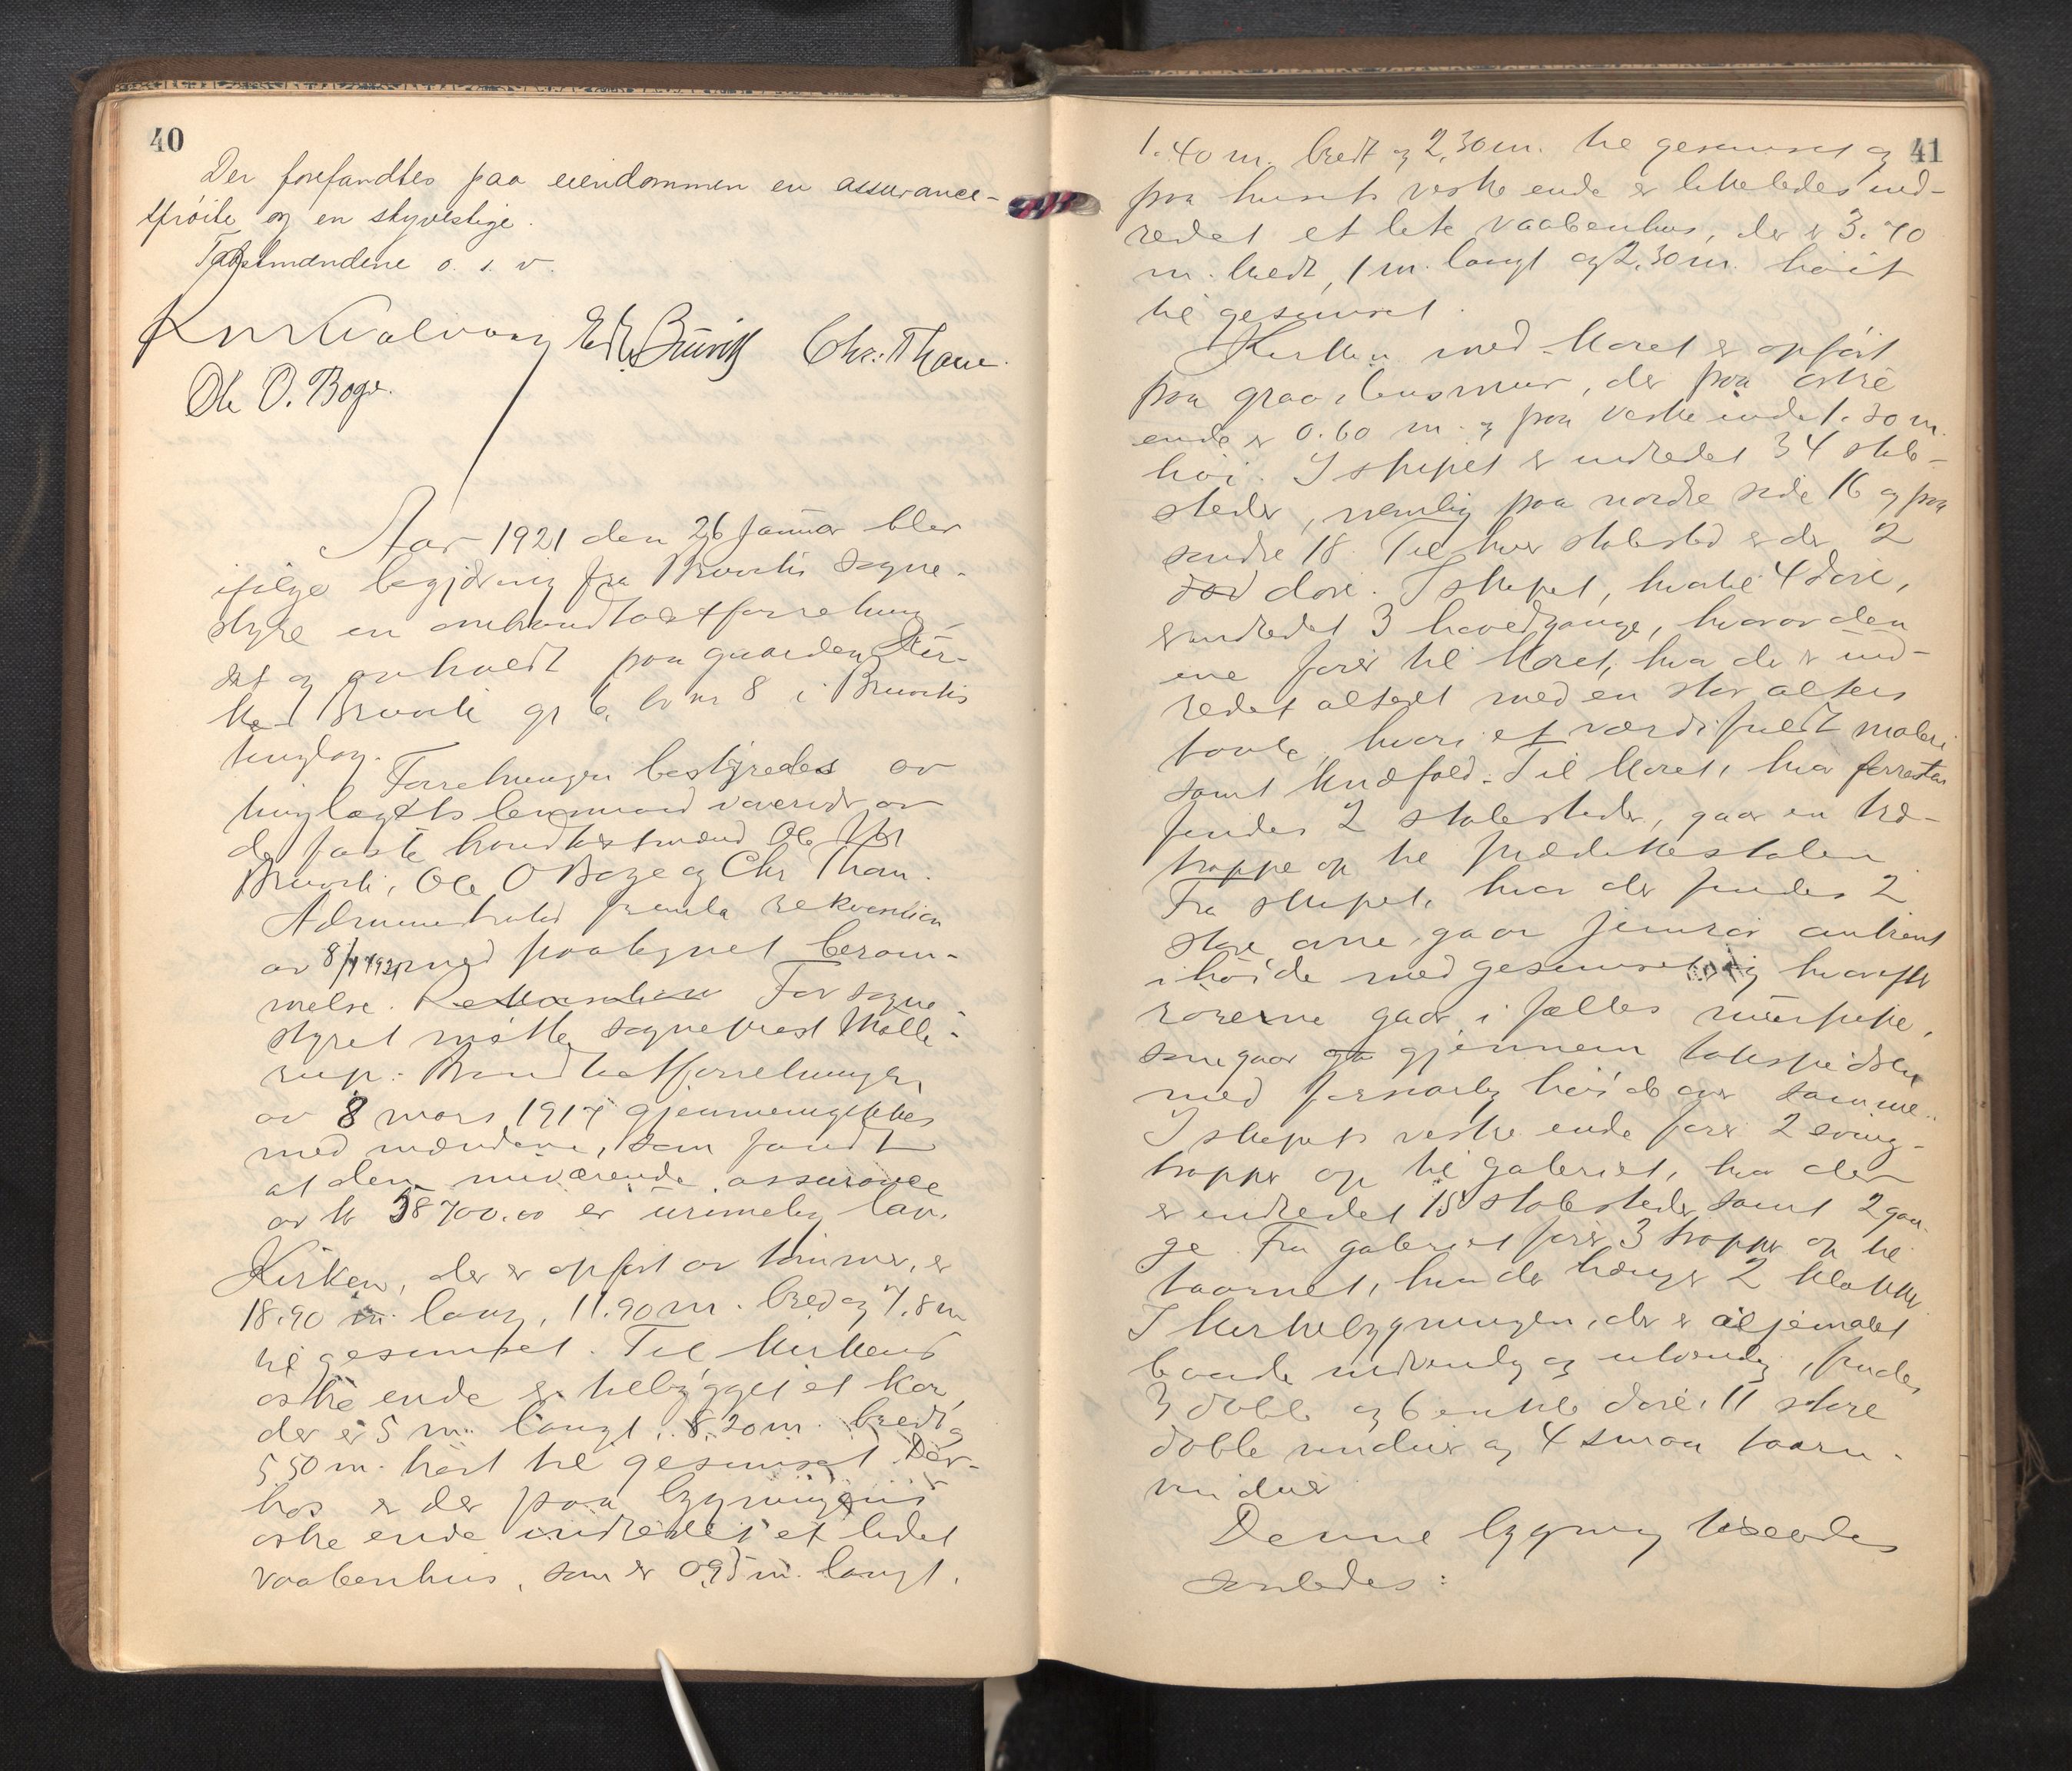 40
Der forefandtes paa eiendommen en assurance-
sprøite og en skyvestige.
Takstmændene o. s. v.
Chr. Thom
Ole O. Boge.
Aar 1921 den 26 Januar blev
ifølge begjæring fra Bruviks sogne-
styre en ombrandtakstforretning
sat og avholdt paa gaarden Kir-
ke- Bruvik gr 6, br nr 8 i Bruviks
tinglag.
Forretningen bestyredes av
tinglagets lensmand
de faste brandtakstmænd Ole
Bruvik, Ole O Boge og Chr Thom.
Administrator fremla rekvisition
av 8/1 1921 med paategnet beram-
melse. For sogne
styret møtte sogneprest Molle-
rup. Brandtakstforretningen
av 8 mars 1917 gjennemgikkes
med mændene, som fandt
at den nuværende assurance
av kr 58700.00 er urimelig lav.
Kirken, der er opført av tømmer, er
18.90 m. lang, 11.90 m. bred og 7.8 m
til gesimset. Til kirkens
østre ende er tilbygget et kor,
der er 5 m. langt, 8.20 m. bredt og
5.50 m. høit til gesimset. Der-
hos er der paa bygningens
østre ende indredet et lidet
vaabenhus, som er 0.95 m. langt,
41
1.40 m. bredt og 2,30 m. til gesimset og
paa husets vestre ende er likeledes ind-
redet et lite vaabenhus, der er 3.70
m. bredt, 1 m. langt og 2,30 m. høit
til gesimset.
Kirken med koret er opført
paa graastensmur, der paa østre
ende er 0.60 m. og paa vestre ende 1.30 m.
høi. I skipet er indredet 34 stole-
steder, nemlig paa nordre side 16 og paa
søndre 18. Til hver stolested er der 2
døre. I skipet, hvortil 4 døre,
er indredet 3 hovedgange, hvorav den
ene fører til koret, hvor der er ind-
redet alteret med en stor alters
tavle, hvori et værdifuldt maleri
samt knæfald. Til koret, hvor forresten
findes 2 stolesteder, gaar en træ-
trappe op til prædikestolen.
Fra skipet, hvor der findes 2
store ovne, gaar jernrør omtrent
i høide med gesimset, hvorefter
rørerne gaar i fælles murpipe,
som gaar gjennem takspidsen
med forsvarlig høide over samme.
I skipets vestre ende fører 2 sving-
trapper op til galeriet, hvor der
er indredet 15 stolesteder samt 2 gan-
ge. Fra galeriet fører 3 trapper op til
taarnet, hvor der hænger 2 klokker.
I kirkebygningen, der er oljemalet
baade indvendig og utvendig, findes
3 doble og 6 enkle døre, 11 store
doble vinduer og 4 smaa taarn-
vinduer
Denne bygning
saaledes: